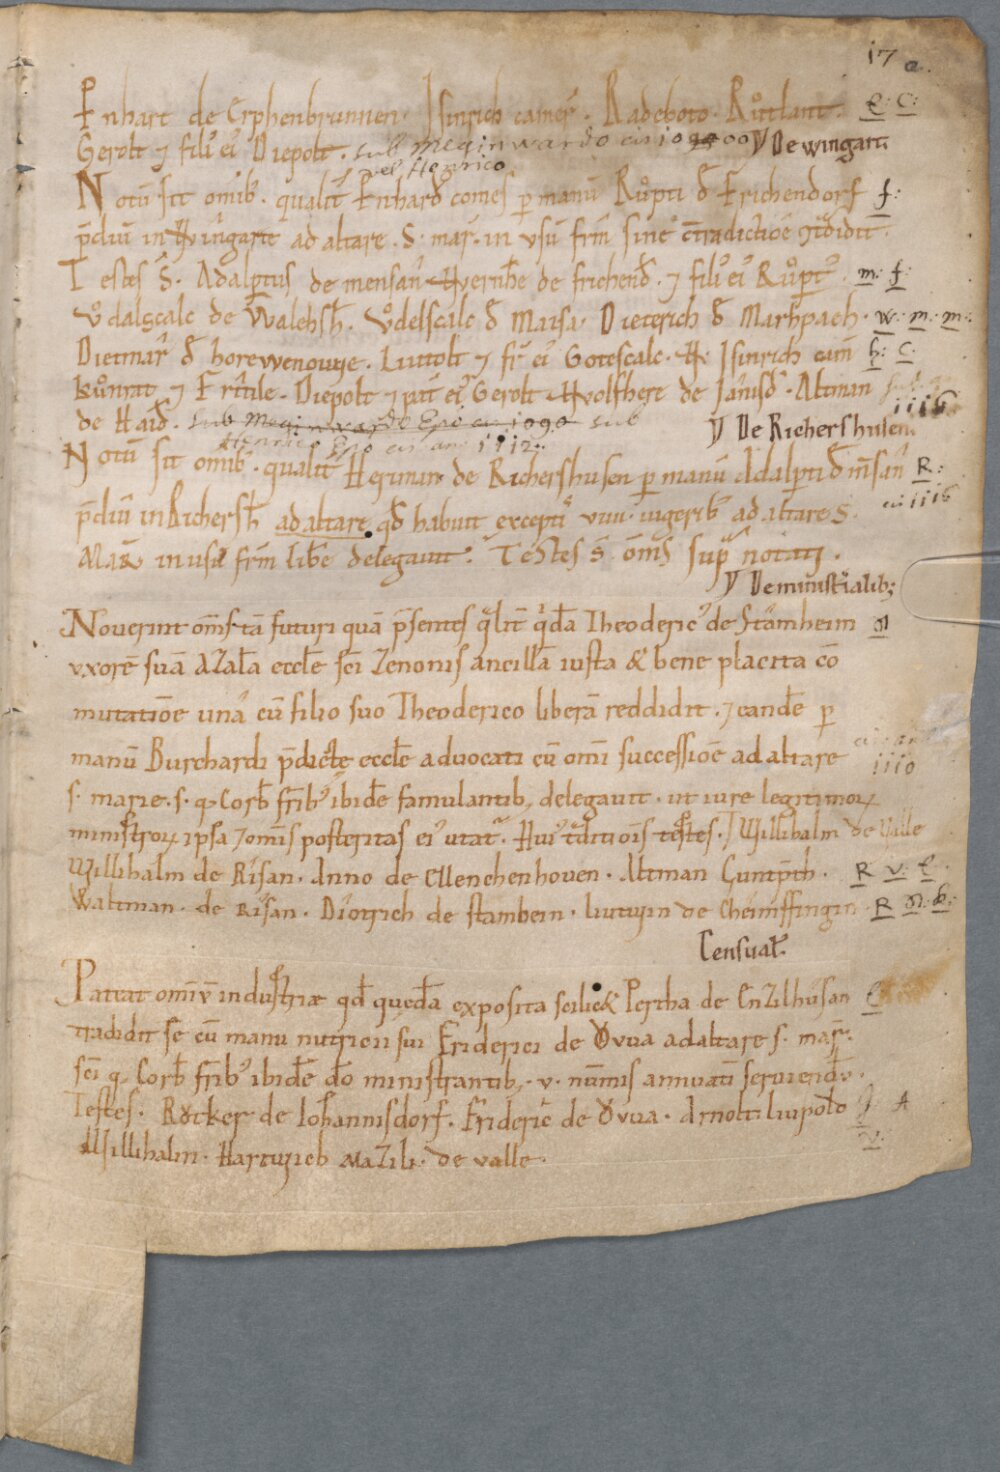 17 a.
Enhart de Erphenbrunnen · Isinrich camer̄ · Radeboto · Růtlant · E: C:
Gerolt ⁊ filiꝰ eiꝰ Diepolt · sub Meginwardo
vel Henrico
De wingarti
Notū sit omib; · qualit̄ Enhard̄ comes ꝑ manū Růpti đ Erichendorf f:
p̄diū in Wingarte ad altare · S · mar̄ · in usū fr̄m sine c̄tradictiōe
Testes s̄ · Adalꝑtus de mensan̄ Wernh̄e de frichend̄ · ⁊ filiꝰ eiꝰ Růpt̄ · m: f:
Vͦdalscalc de Walehsh̄ · Vͦdelscalc đ Maisa · Dieterich đ Marhpach · w: m: m:
Dietmar̄ đ horewenouwe · Liutolt ⁊ fr̄ eiꝰ Gotescalc · Isinrich cam̄ h: C:
Kůnrat ⁊ · Diepolt ⁊ pat̄ eiꝰ Gerolt · Wolfhere de · Altman
1116
de Haid̄ · sub Meginwardo Epō cir 1090 sub
Henrico Epō cir an̄ 1112 ·
De Richershusen
Notū sit omib; · qualit̄ Hegiman de Richershusen ꝑ manū Adalꝑti đ m̄san̄ R:
p̄diū in Richersh̄ ad altare qđ habuit excepti viiii iugerib; ad altare S · 1116
MAR̄ in usū fr̄m lib̄e delegavit · Testes s̄ om̄s sup̄ notati ·
De ministialib;
Noverint om̄s tā futuri quā p̄sentes qͣlit̄ qͥdā Theodericꝰ de Stāmheim
uxorē suā Azalā eccl̄e sc̄i Zenonis ancillā iusta & bene placita cō
mutatiōe una cū filio suo Theoderico liberā reddidit · ⁊ eandē ꝑ
manū Burchardi p̄dicte eccl̄e advocati cū om̄i successiōe ad altare
1110
s · marie · s · q; Corb̄ fr̄ib; ibidē famulantib; delegavit · ut iure legitimoꝝ
ministroꝝ ipsa ⁊ om̄is posteritas eiꝰ utat̄ · Huiꝰ tͣditiois testes · Willihalm de Valle
Willihalm de Risan · Anno de Menchenhoven · Altman Guntp̄ch · R v: E:
Waltman · de Risan · Diotrich de stambem · liutwin de Cheimffingin · R
Censual̄ ·
Pateat omīū industriæ qđ quędā exposita scilic& Pertha de Enzilhusan E
tradidit se cū manu nutricii sui Friderici de Ovua ad altare s · mar̄ ·
sc̄i q; Corb̄ fr̄ib; ibidē d̄o ministrantib; · v · nūmis annuatī serviendo ·
Testes · Rotker de Iohannisdorf · Frideric̄ de Ovua · Arnolt liupolt A
Willihalm · Hartwich Mazili · de valle ·